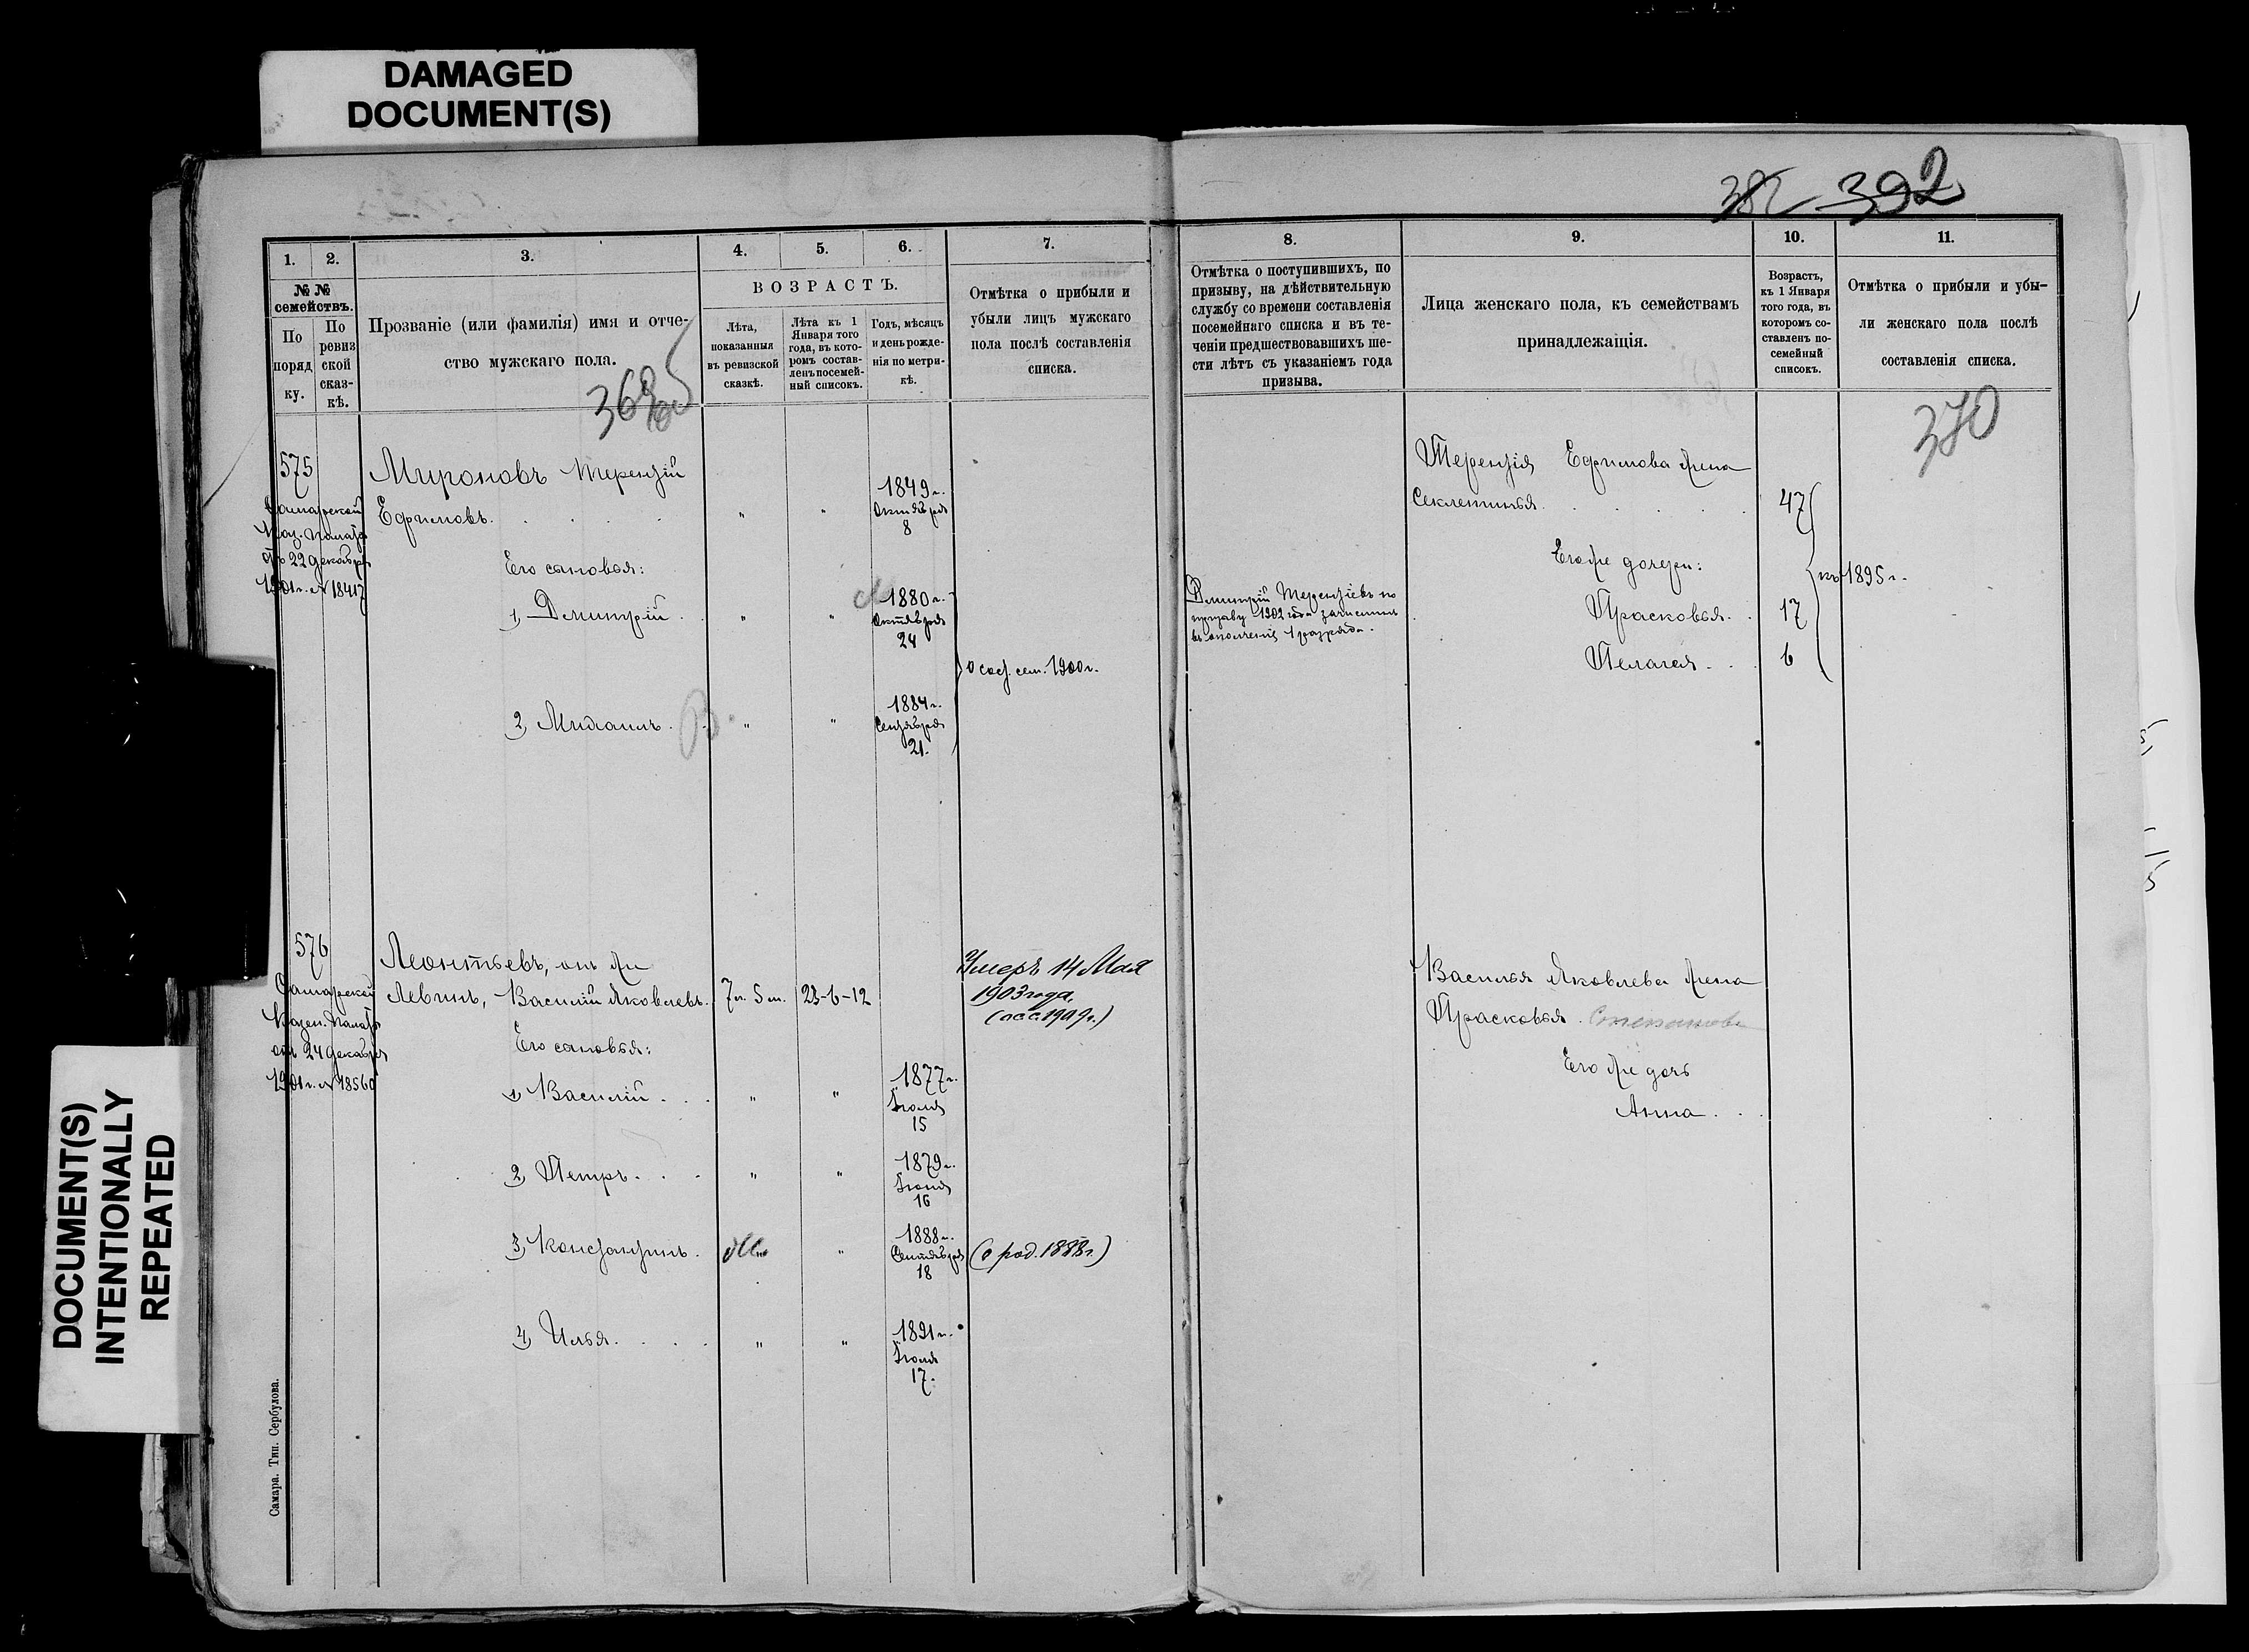 DAMAGED
DOCUMENT(S)
392
1.
2.
3.
4.
5.
6.
7.
№ №
семействъ.
По
поряд
ку.
По
ревиз
ской
сказ-
кѣ.
Прозваніе (или фамилія) имя и отче-
ство мужскаго пола.
ВОЗРАСТЪ.
Лѣта,
показанныя
въ ревизской
сказкѣ.
Лѣта къ 1
Января того
года, въ кото-
ромъ состав-
ленъ посемей-
ный списокъ.
Годъ, мѣсяцъ
и день рожде-
нія по метри-
кѣ.
Отмѣтка о прибыли и
убыли лицъ мужскаго
пола послѣ составленія
списка.
8.
9.
10.
11.
Отмѣтка о поступившихъ, по
призыву, на дѣйствительную
службу со времени составленія
посемейнаго списка и въ те-
ченіи предшествовавшихъ ше-
сти лѣтъ съ указаніемъ года
призыва.
Лица женскаго пола, къ семействамъ
принадлежащія.
Возрастъ,
къ 1 Января
того года, въ
которомъ со-
ставленъ по-
семейный
списокъ.
Отмѣтка о прибыли и убы-
ли женскаго пола послѣ
составленія списка.
369
370
575
Самарской
Каз. Палаты
отъ 22 декабря
1901 г. № 18417
Мироновъ Терентій
Ефимовъ.
" "
1849 г.
Октября
8
Его сыновья:
1, Дмитрій
" "
1880 г.
Октября
24
2, Михаилъ
" "
1884 г.
Сентября
21.
о сост. сем. 1900 г.
Дмитрій Терентіевъ по
призыву 1902 года зачисленъ
въ ополченіе 1 разряда.
Терентія Ефимова жена
Секлетинья
47
Его же дочери:
Прасковья
17
Пелагея
6
къ 1895 г.
576
Самарской
Казен. Палаты
отъ 24 декабря
1901 г. № 18560
Леонтьевъ, онъ же
Левинъ, Василій Яковлевъ.
7 л. 5 м.
23-6-12
Умеръ 14 Мая
1903 года.
Его сыновья:
1, Василій
" "
1877 г.
Іюля
15
2, Петръ
" "
1879 г.
16
3, Константинъ
"
1888 г.
Сентября
18
(о род. 1888 г.)
4, Илья
" "
1891 г.
Іюля
17.
Василья Яковлева жена
Прасковья Степанова
Его же дочь
Анна
DOCUMENT(S)
INTENTIONALLY
REPEATED
Самара. Тип. Сербулова.